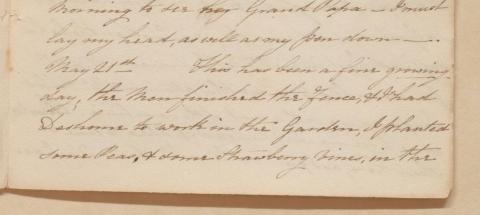 morning to see my Grand Papa - I must
lay my head, as well as my pen down —.
May 21th This has been a fine growing
day, the Men finished the Fence, & I had
to work in the Garden, I planted
some Peas, & some Strawberry vines, in the